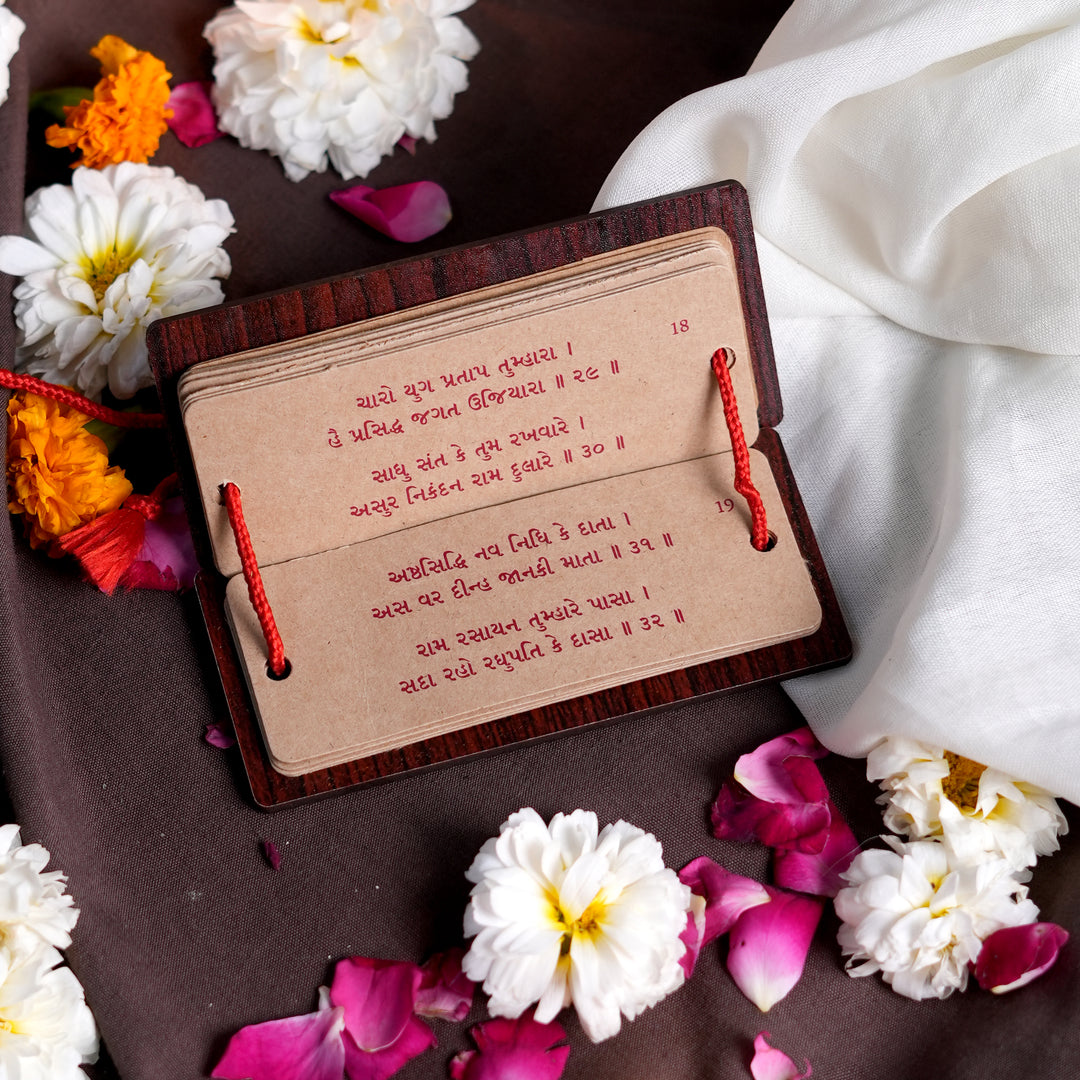 18
ચારો યુગ પ્રતાપ તુમ્હારા ।
હૈ પ્રસિદ્ધ જગત ઉજિયારા ॥ ૨૯ ॥
સાધુ સંત કે તુમ રખવારે ।
અસુર નિકંદન રામ દુલારે ॥ ૩૦ ॥
19
અષ્ઠસિદ્ધિ નવ નિધિ કે દાતા ।
અસ વર દીન્હ જાનકી માતા ॥ ૩૧ ॥
રામ રસાયન તુમ્હારે પાસા ।
સદા રહો રઘુપતિ કે દાસા ॥ ૩૨ ॥